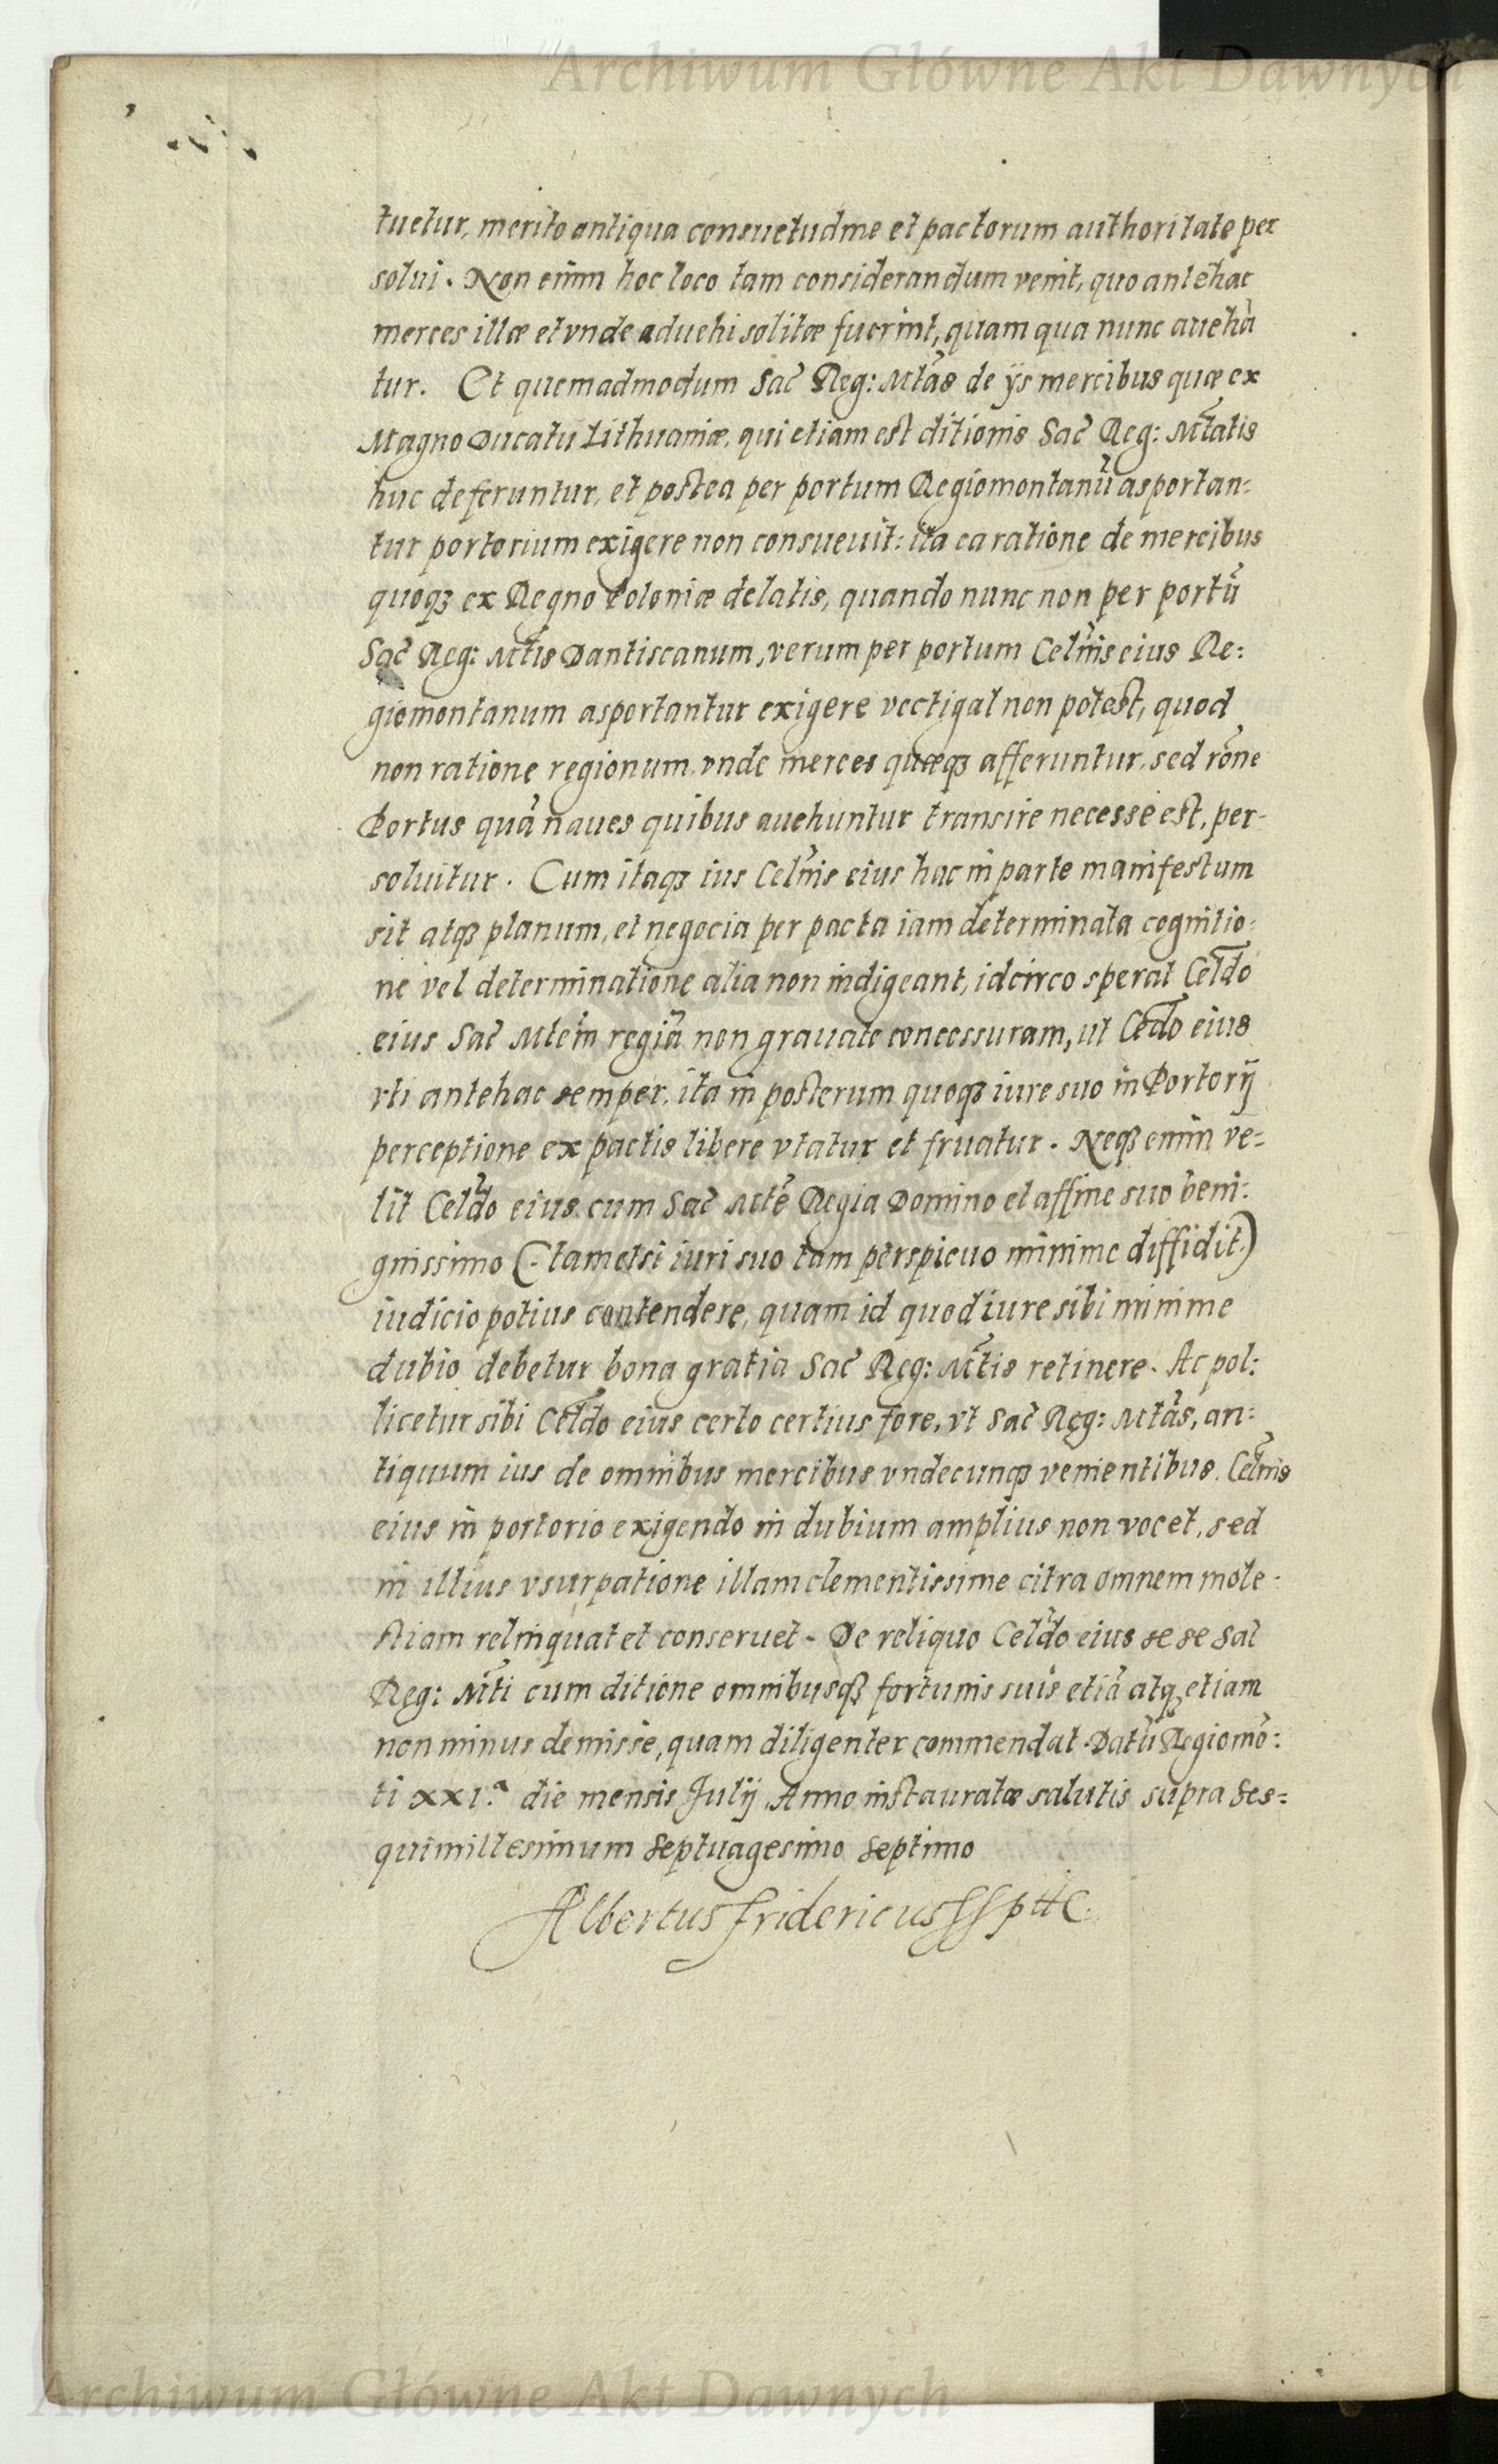 Archiwum Główne Akt Dawnych
tuetur, merito antiqua consuetudine et pactorum authoritate per
solui. Non enim hoc loco tam considerandum venit, quo antehac
merces illæ et vnde aduehi solitæ fuerint, quam qua nunc auehã
tur. Et quemadmodum Sac̃ Reg: Mtãs de ÿs mercibus quæ ex
Magno Ducatu Lithuaniæ, qui etiam est ditionis Sac̃ Reg: Mt̃atis
huc deferuntur, et postea per portum Regiomontanũ asportan:
tur portorium exigere non consueuit: ita ea ratione de mercibus
quoqꝫ ex Regno Poloniæ delatis, quando nunc non per portũ
Sac̃ Reg: Mt̃is Dantiscanum, verum per portum Celñis eius Re:
giomontanum asportantur exigere vectigal non potest, quod
non ratione regionum, vnde merces quæqꝫ afferuntur, sed rõne
Portus quã naues quibus auehuntur transire necesse est, per-
soluitur. Cum itaqꝫ ius Celñis eius hac in parte manifestum
sit atqꝫ planum, et negocia per pacta iam determinata cognitio:
ne vel determinatione alia non indigeant, idcirco sperat Cel̃do
eius Sac̃ Mtem̃ regiã non grauate concessuram, ut Ce̋do eius
vti antehac semper, ita in posterum quoqꝫ iure suo in Portorÿ
perceptione ex pactis libere vtatur et fruatur. Neqꝫ enim ve=
lit Cel̃do eius cum Sac̃ Mtẽ Regia Domino et affine suo beni:
gnissimo (: tametsi iuri suo tam perspicuo minime diffidit:)
iudicio potius contendere, quam id quod iure sibi minime
dubio debetur bona gratia Sac̃ Reg: Mt̃is retinere. Ac pol:
licetur sibi Cel̃do eius certo certius fore, vt Sac̃ Reg: Mtãs, an:
tiquum ius de omnibus mercibus vndecunqꝫ venientibus, Celñis
eius in portorio exigendo in dubium amplius non vocet, sed
in illius vsurpatione illam clementissime citra omnem mole:
stiam relinquat et conseruet. De reliquo Cel̃do eius se se Sac̃
Reg: Mt̃i cum ditione omnibusqꝫ fortunis suis etiã atqꝫ etiam
non minus demisse, quam diligenter commendat. Datũ Regiomõ:
ti xxi.ª die mensis Julÿ Anno instauratæ salutis supra Ses=
quimillesimum Septuagesimo Septimo
Albertus Fridericus
Archiwum Główne Akt Dawnych